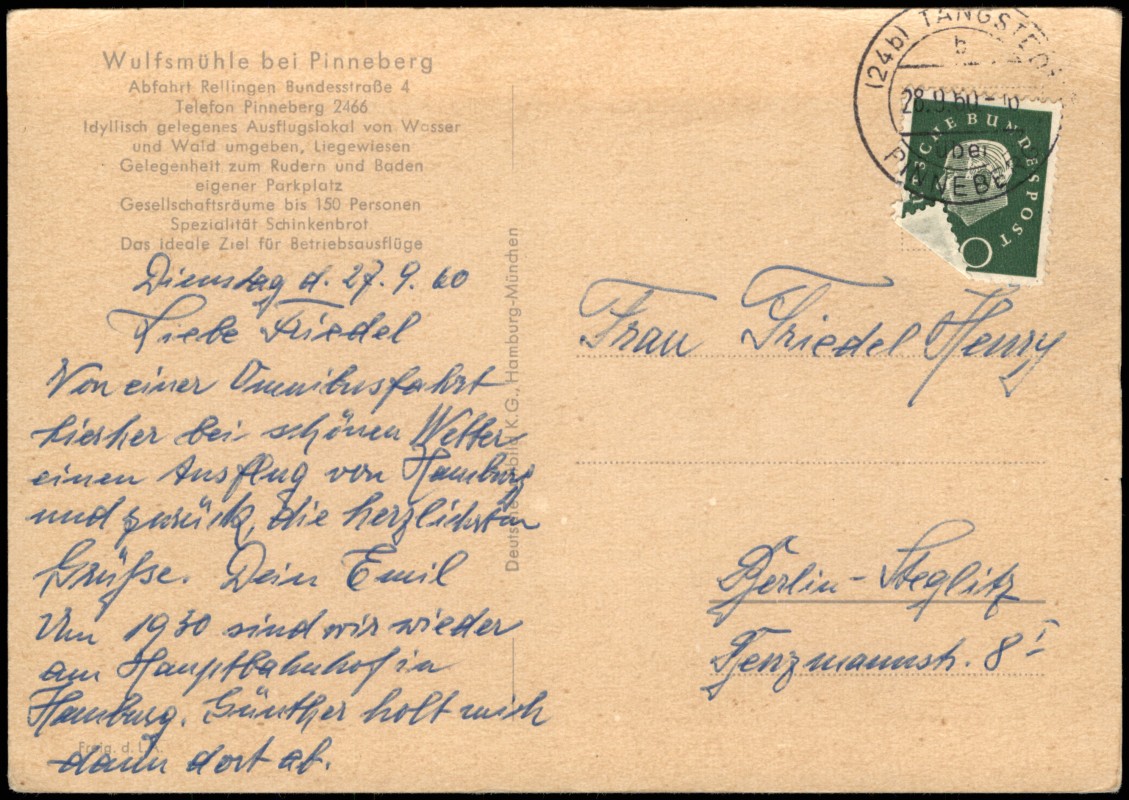 Wulfsmühle bei Pinneberg
Abfahrt Rellingen Bundesstraße 4
Telefon Pinneberg 2466
Idyllisch gelegenes Ausflugslokal von Wasser
und Wald umgeben, Liegewiesen
Gelegenheit zum Rudern und Baden
eigener Parkplatz
Gesellschaftsräume bis 150 Personen
Spezialität Schinkenbrot
Das ideale Ziel für Betriebsausflüge
Dienstag d. 27. 9. 60
Liebe Friedel
Von einer Omnibusfahrt
hierher bei schönen Wetter
einen Ausflug von Hamburg
und zurück, die herzlichsten
Grüße. Dein Emil
Um 1930 sind wir wieder
am Hauptbahnhof in
Hamburg. Günther holt mich
dann dort ab.
Freig. d. L.A.
K.G., Hamburg-München
(24b) TANGSTEDT
b
28.9.60-16
über
PINNEBE
SCHE BUNDESPOST
Frau Friedel Henry
Berlin-Steglitz
8 I